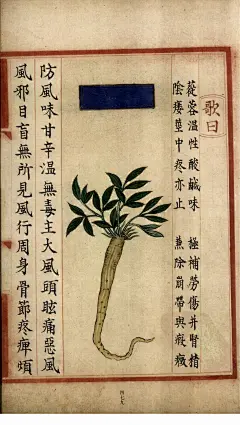 歌曰
蓯蓉溫性酸鹹味 極補勞傷并腎精
陰痿莖中疼亦止 兼除崩帶與瘕癥
防風味甘辛溫無毒主大風頭眩痛惡風
風邪目盲無所見風行周身骨節疼痺煩
四七九